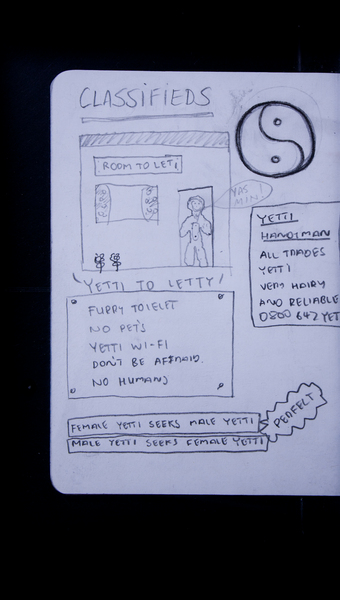 CLASSIFIEDS
ROOM TO LETTi
YAS
MIN!
YETTI TO LETTY!
FURRY TOIELET
NO PET'S
YETTI WI-FI
DON'T BE AFRAID.
NO HUMANS
YETTI
HANDIMAN
ALL TRADES
YETTI
VERY HAIRY
AND RELIABLE
0800 642 YET
FEMALE YETTI SEEKS MALE YETTI
MALE YETTI SEEKS FEMALE YETTI
PERFELT